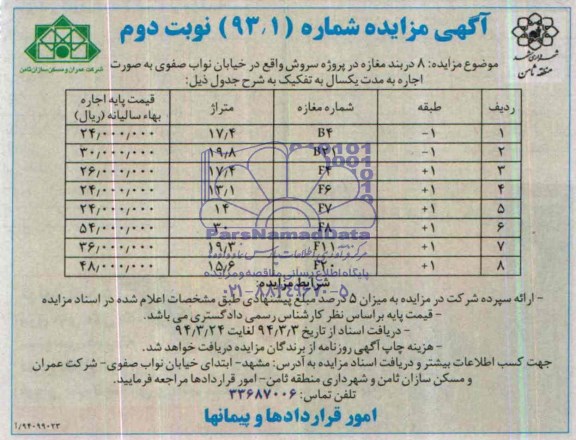 آگهی مزایده شماره (۹۳٫۱) نوبت دوم
شرکت عمران و مسکن سازان ثامن
شهرداری مشهد
منطقه ثامن
موضوع مزایده: ۸ دربند مغازه در پروژه سروش واقع در خیابان نواب صفوی به صورت
اجاره به مدت یکسال به تفکیک به شرح جدول ذیل:
ردیف طبقه شماره مغازه متراژ قیمت پایه اجاره بهاء سالیانه (ریال)
۱ -۱ B۴ ۱۷٫۴ ۲۴٫۰۰۰٫۰۰۰
۲ -۱ B۲۱ ۱۹٫۸ ۳۰٫۰۰۰٫۰۰۰
۳ +۱ F۴ ۱۷٫۴ ۲۶٫۰۰۰٫۰۰۰
۴ +۱ F۶ ۱۳٫۱ ۲۴٫۰۰۰٫۰۰۰
۵ +۱ F۷ ۱۴ ۲۴٫۰۰۰٫۰۰۰
۶ +۱ F۸ ۳۰ ۵۴٫۰۰۰٫۰۰۰
۷ +۱ F۱۱ ۱۹٫۳ ۳۶٫۰۰۰٫۰۰۰
۸ +۱ F۲۰ ۱۵٫۶ ۴۸٫۰۰۰٫۰۰۰
ParsNamadData
پایگاه اطلاع رسانی مناقصه و مزایده
۰۲۱-۸۸۳۴۹۶۷۰-۵
شرایط مزایده:
- ارائه سپرده شرکت در مزایده به میزان ۵ درصد مبلغ پیشنهادی طبق مشخصات اعلام شده در اسناد مزایده
- قیمت پایه براساس نظر کارشناس رسمی دادگستری می باشد.
- دریافت اسناد از تاریخ ۹۴/۳/۳ لغایت ۹۴/۳/۲۴
- هزینه چاپ آگهی روزنامه از برندگان مزایده دریافت خواهد شد.
جهت کسب اطلاعات بیشتر و دریافت اسناد مزایده به آدرس: مشهد- ابتدای خیابان نواب صفوی- شرکت عمران
و مسکن سازان ثامن و شهرداری منطقه ثامن- امور قراردادها مراجعه فرمایید.
تلفن تماس: ۳۳۶۸۷۰۰۶
امور قراردادها و پیمانها
۹۴۰۹۹۰۲۳/آ